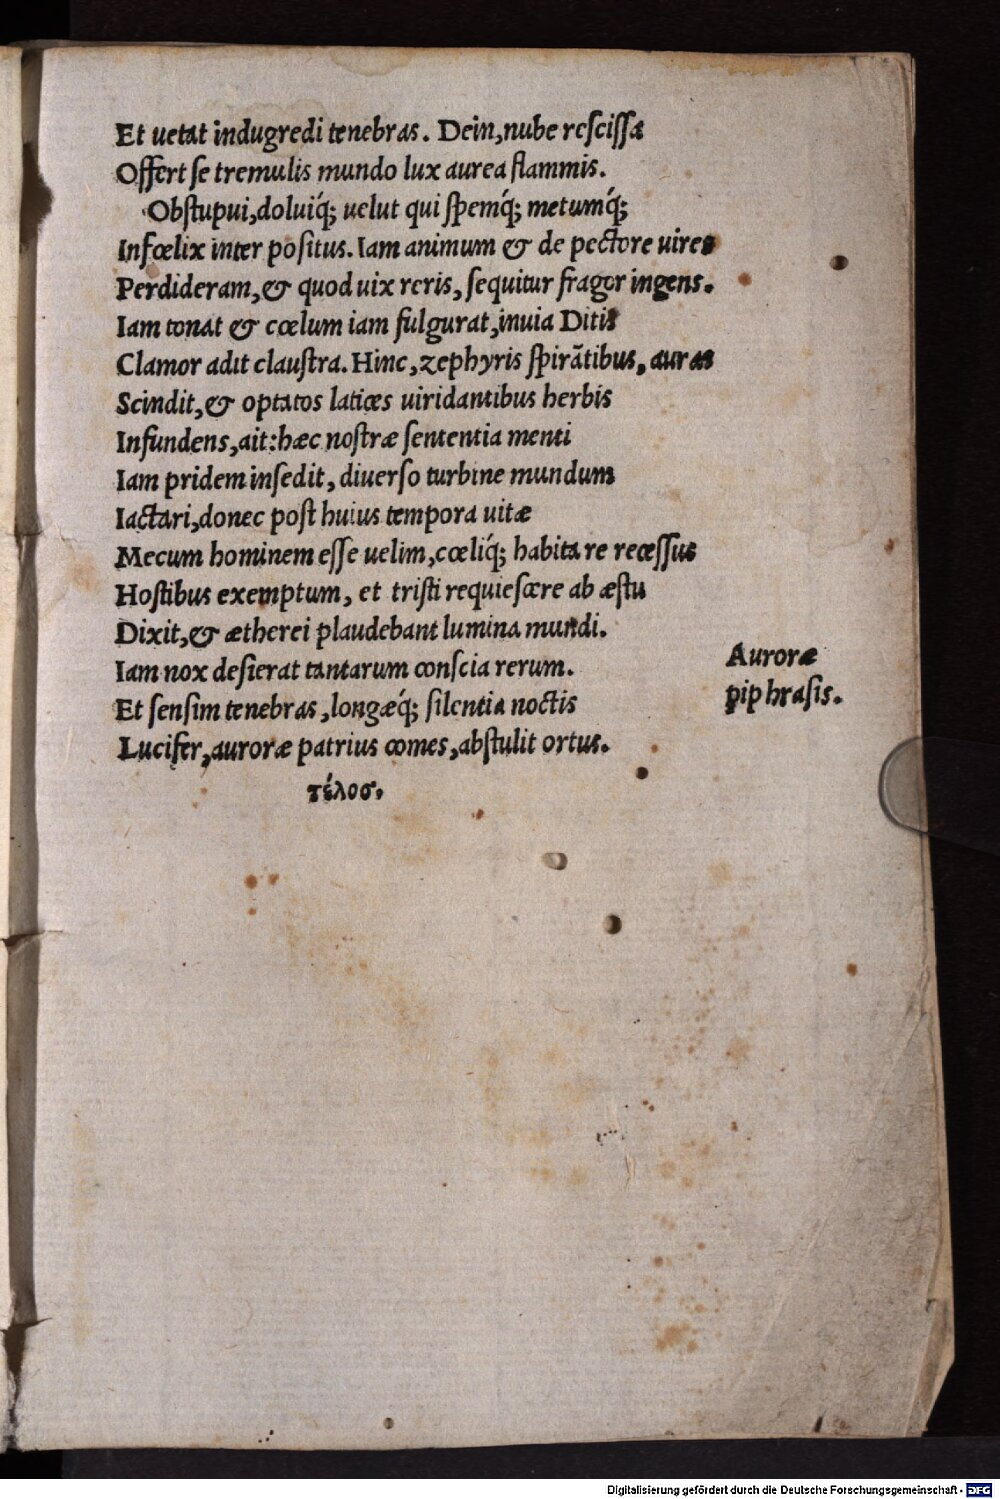 Et uetat indugredi tenebras. Dein, nube rescissa
Offert se tremulis mundo lux aurea flammis.
Obstupui, doluiq́; uelut qui spemq́; metumq́;
Infœlix inter positus. Iam animum & de pectore uires
Perdideram, & quod uix reris, sequitur fragor ingens.
Iam tonat & cœlum iam fulgurat, inuia Ditis
Clamor adit claustra. Hinc, zephyris spirātibus, auras
Scindit, & optatos latices uiridantibus herbis
Infundens, ait: hæc nostræ sententia menti
Iam pridem insedit, diuerso turbine mundum
Iactari, donec post huius tempora uitæ
Mecum hominem esse uelim, cœliq́; habitare recessus
Hostibus exemptum, et tristi requiescere ab æstu
Dixit, & ætherei plaudebant lumina mundi.
Iam nox desierat tantarum conscia rerum.
Auroræ
Et sensim tenebras, longæq́; silentia noctis
piphrasis.
Lucifer, auroræ patrius comes, abstulit ortus.
τέλοσ.
Digitalisierung gefördert durch die Deutsche Forschungsgemeinschaft - DFG